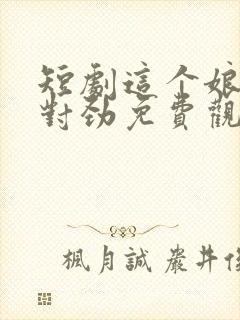 短劇這个娘
對劲免費觀
楓月誠 巖井俊